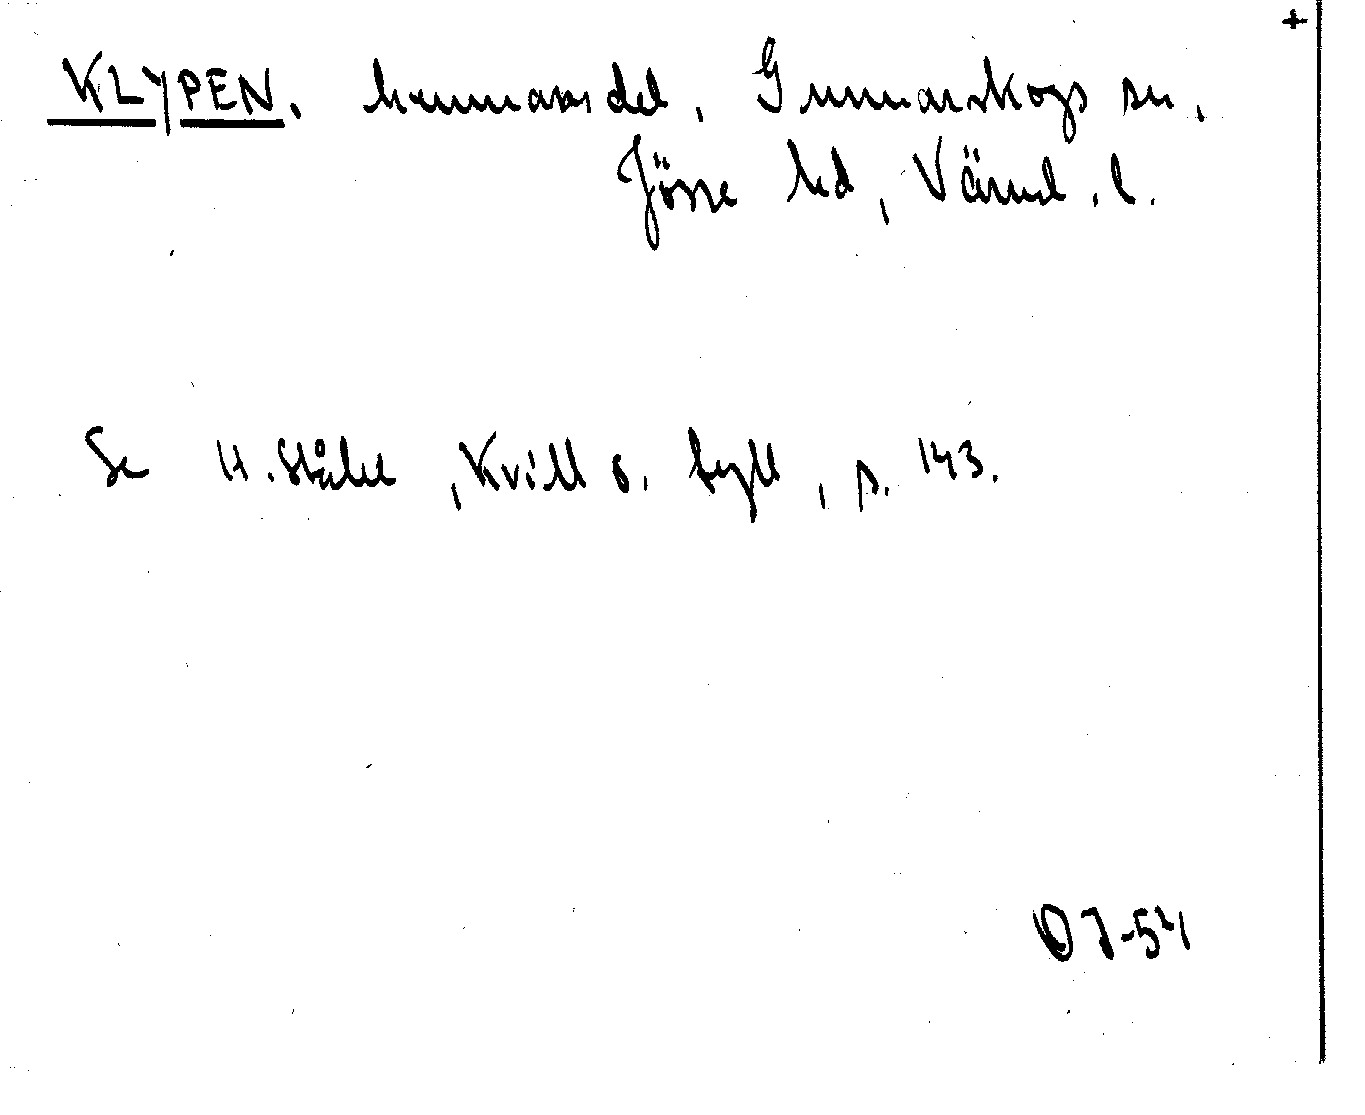 +
KLYPEN, hemmansdel, Gunnarskogs sn,
Jösse hd, Värml. l.
Se H. Ståhl, Kvill o. tyll, s. 143.
OJ-54